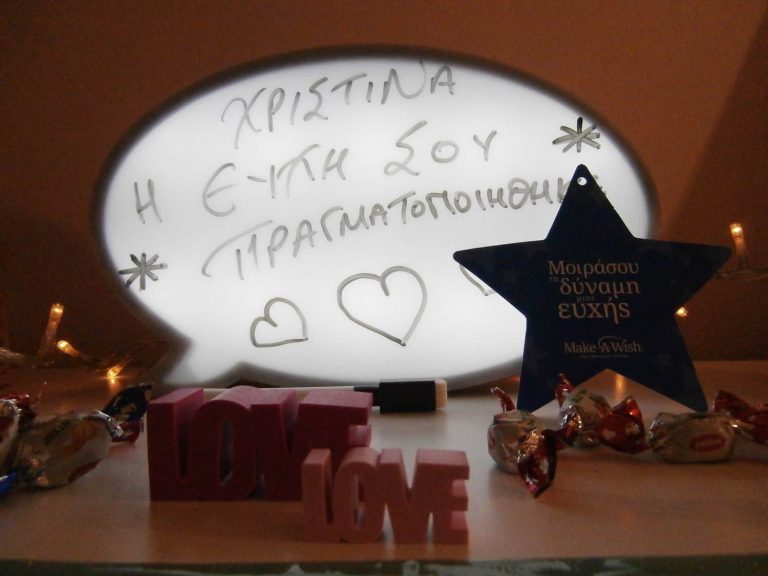 ΧΡΙΣΤΙΝΑ
Η ΕΥΧΗ ΣΟΥ
ΠΡΑΓΜΑΤΟΠΟΙΗΘΗΚΕ
Μοιράσου
τη δύναμη
μιας
ευχής
Make-A-Wish
LOVE
LOVE